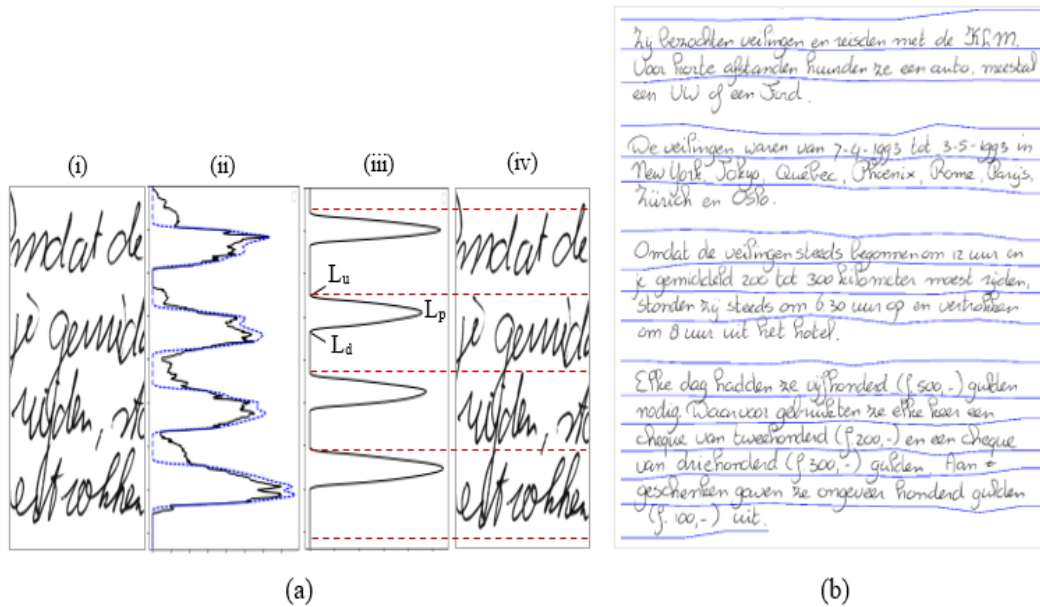 (i) (ii) (iii) (iv)
Omdat de
je gemidd
rijden, sto
ertrokken
L_u
L_p
L_d
Omdat de
je gemidd
rijden, sto
ertrokken
(a)
Zij bezochten veilingen en reisden met de KLM.
Voor korte afstanden huurden ze een auto, meestal
een VW of een Ford.
De veilingen waren van 7-4-1993 tot 3-5-1993 in
New York, Tokyo, Québec, Phoenix, Rome, Parijs,
Zürich en Oslo.
Omdat de veilingen steeds begonnen om 12 uur en
je gemiddeld 200 tot 300 kilometer moest rijden,
stonden zij steeds om 6.30 uur op en vertrokken
om 8 uur uit het hotel.
Elke dag hadden ze vijfhonderd (f 500,-) gulden
nodig. Waarvoor gebruikten ze elke keer een
cheque van tweehonderd (f 200,-) en een cheque
van driehonderd (f 300,-) gulden. Aan
geschenken gaven ze ongeveer honderd gulden
(f. 100,-) uit.
(b)